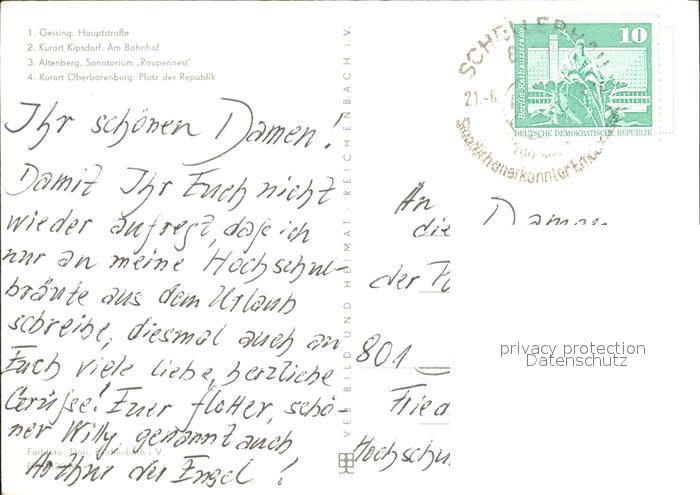 1. Geising. Hauptstraße
2. Kurort Kipsdorf. Am Bahnhof
3. Altenberg. Sanatorium „Raupennest"
4. Kurort Oberbärenburg. Platz der Republik
Ihr schönen Damen!
Damit Ihr Euch nicht
wieder aufregt, daß ich
nur an meine Hochschul-
bräute aus dem Urlaub
schreibe, diesmal auch an
Euch viele liebe, herzliche
Grüße! Euer flotter, schö-
ner Willy, genannt auch
Arthur der Engel!
Reichenbach i. V.
VEB BILD UND HEIMAT · REICHENBACH i. V.
SCHELLERHAU
21.-8.
Staatlich anerkannter
Berlin-Rathausstraße
10
DEUTSCHE DEMOKRATISCHE REPUBLIK
An
die Damen
der
801
Hochschu
privacy protection
Datenschutz